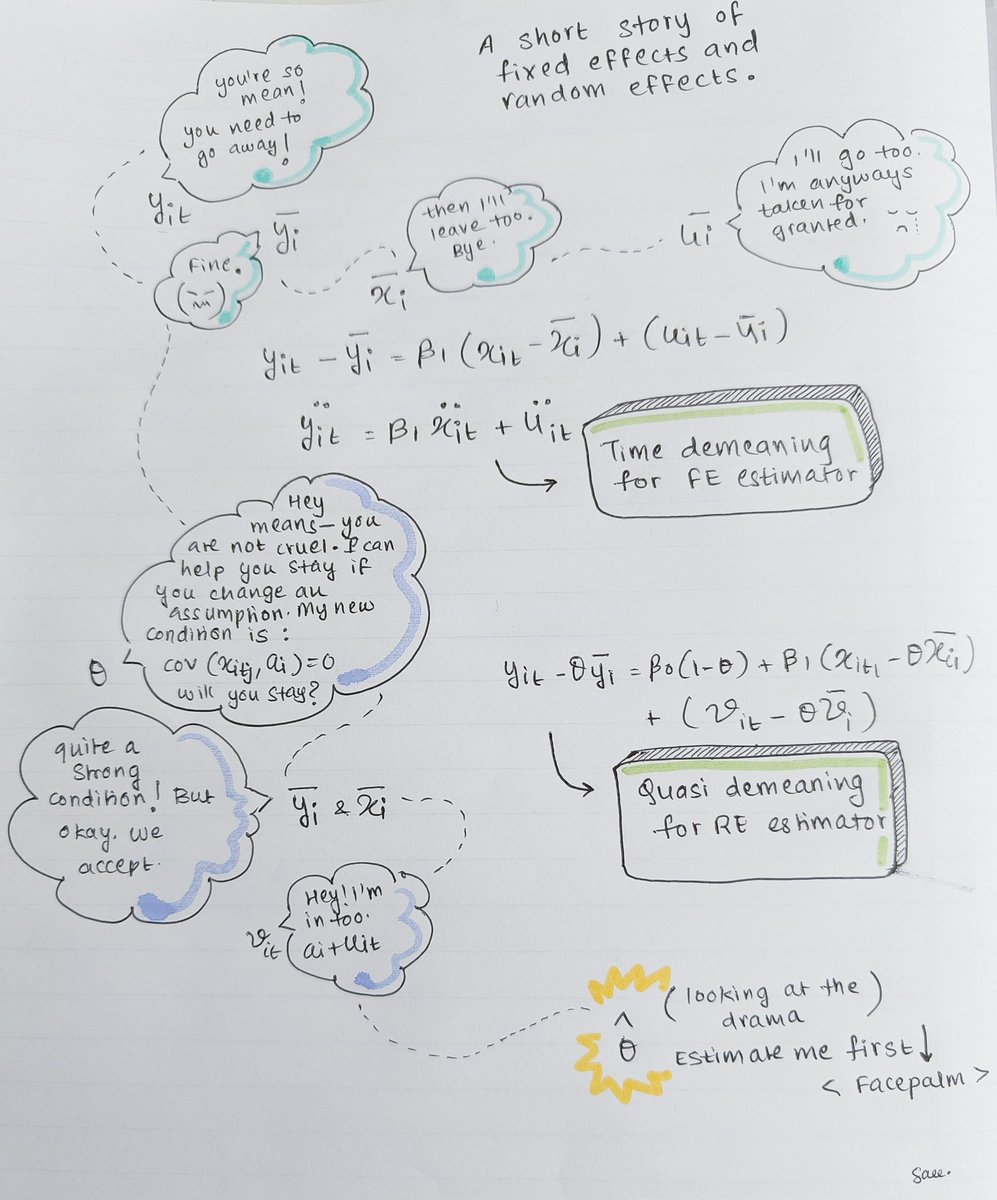 A short story of
fixed effects and
random effects.
you're so
mean!
you need to
go away!
yit
ȳi
Fine.
then I'll
leave too.
Bye.
x̄i
I'll go too.
I'm anyways
taken for
granted.
ūi
yit - ȳi = β1 (xit - x̄i) + (uit - ūi)
ÿit = β1 ẍit + üit
Time demeaning
for FE estimator
Hey
means- you
are not cruel. I can
help you stay if
you change an
assumption. My new
condition is :
cov (xitj, ai) = 0
will you stay?
θ
yit - θȳi = β0(1-θ) + β1 (xit1 - θx̄i1)
+ (vit - θv̄i)
Quasi demeaning
for RE estimator
quite a
strong
condition! But
okay. we
accept.
ȳi & x̄i
Hey! I'm
in too.
ai + uit
vit
θ̂
(looking at the
drama)
Estimate me first ↓
< Facepalm >
Saee.